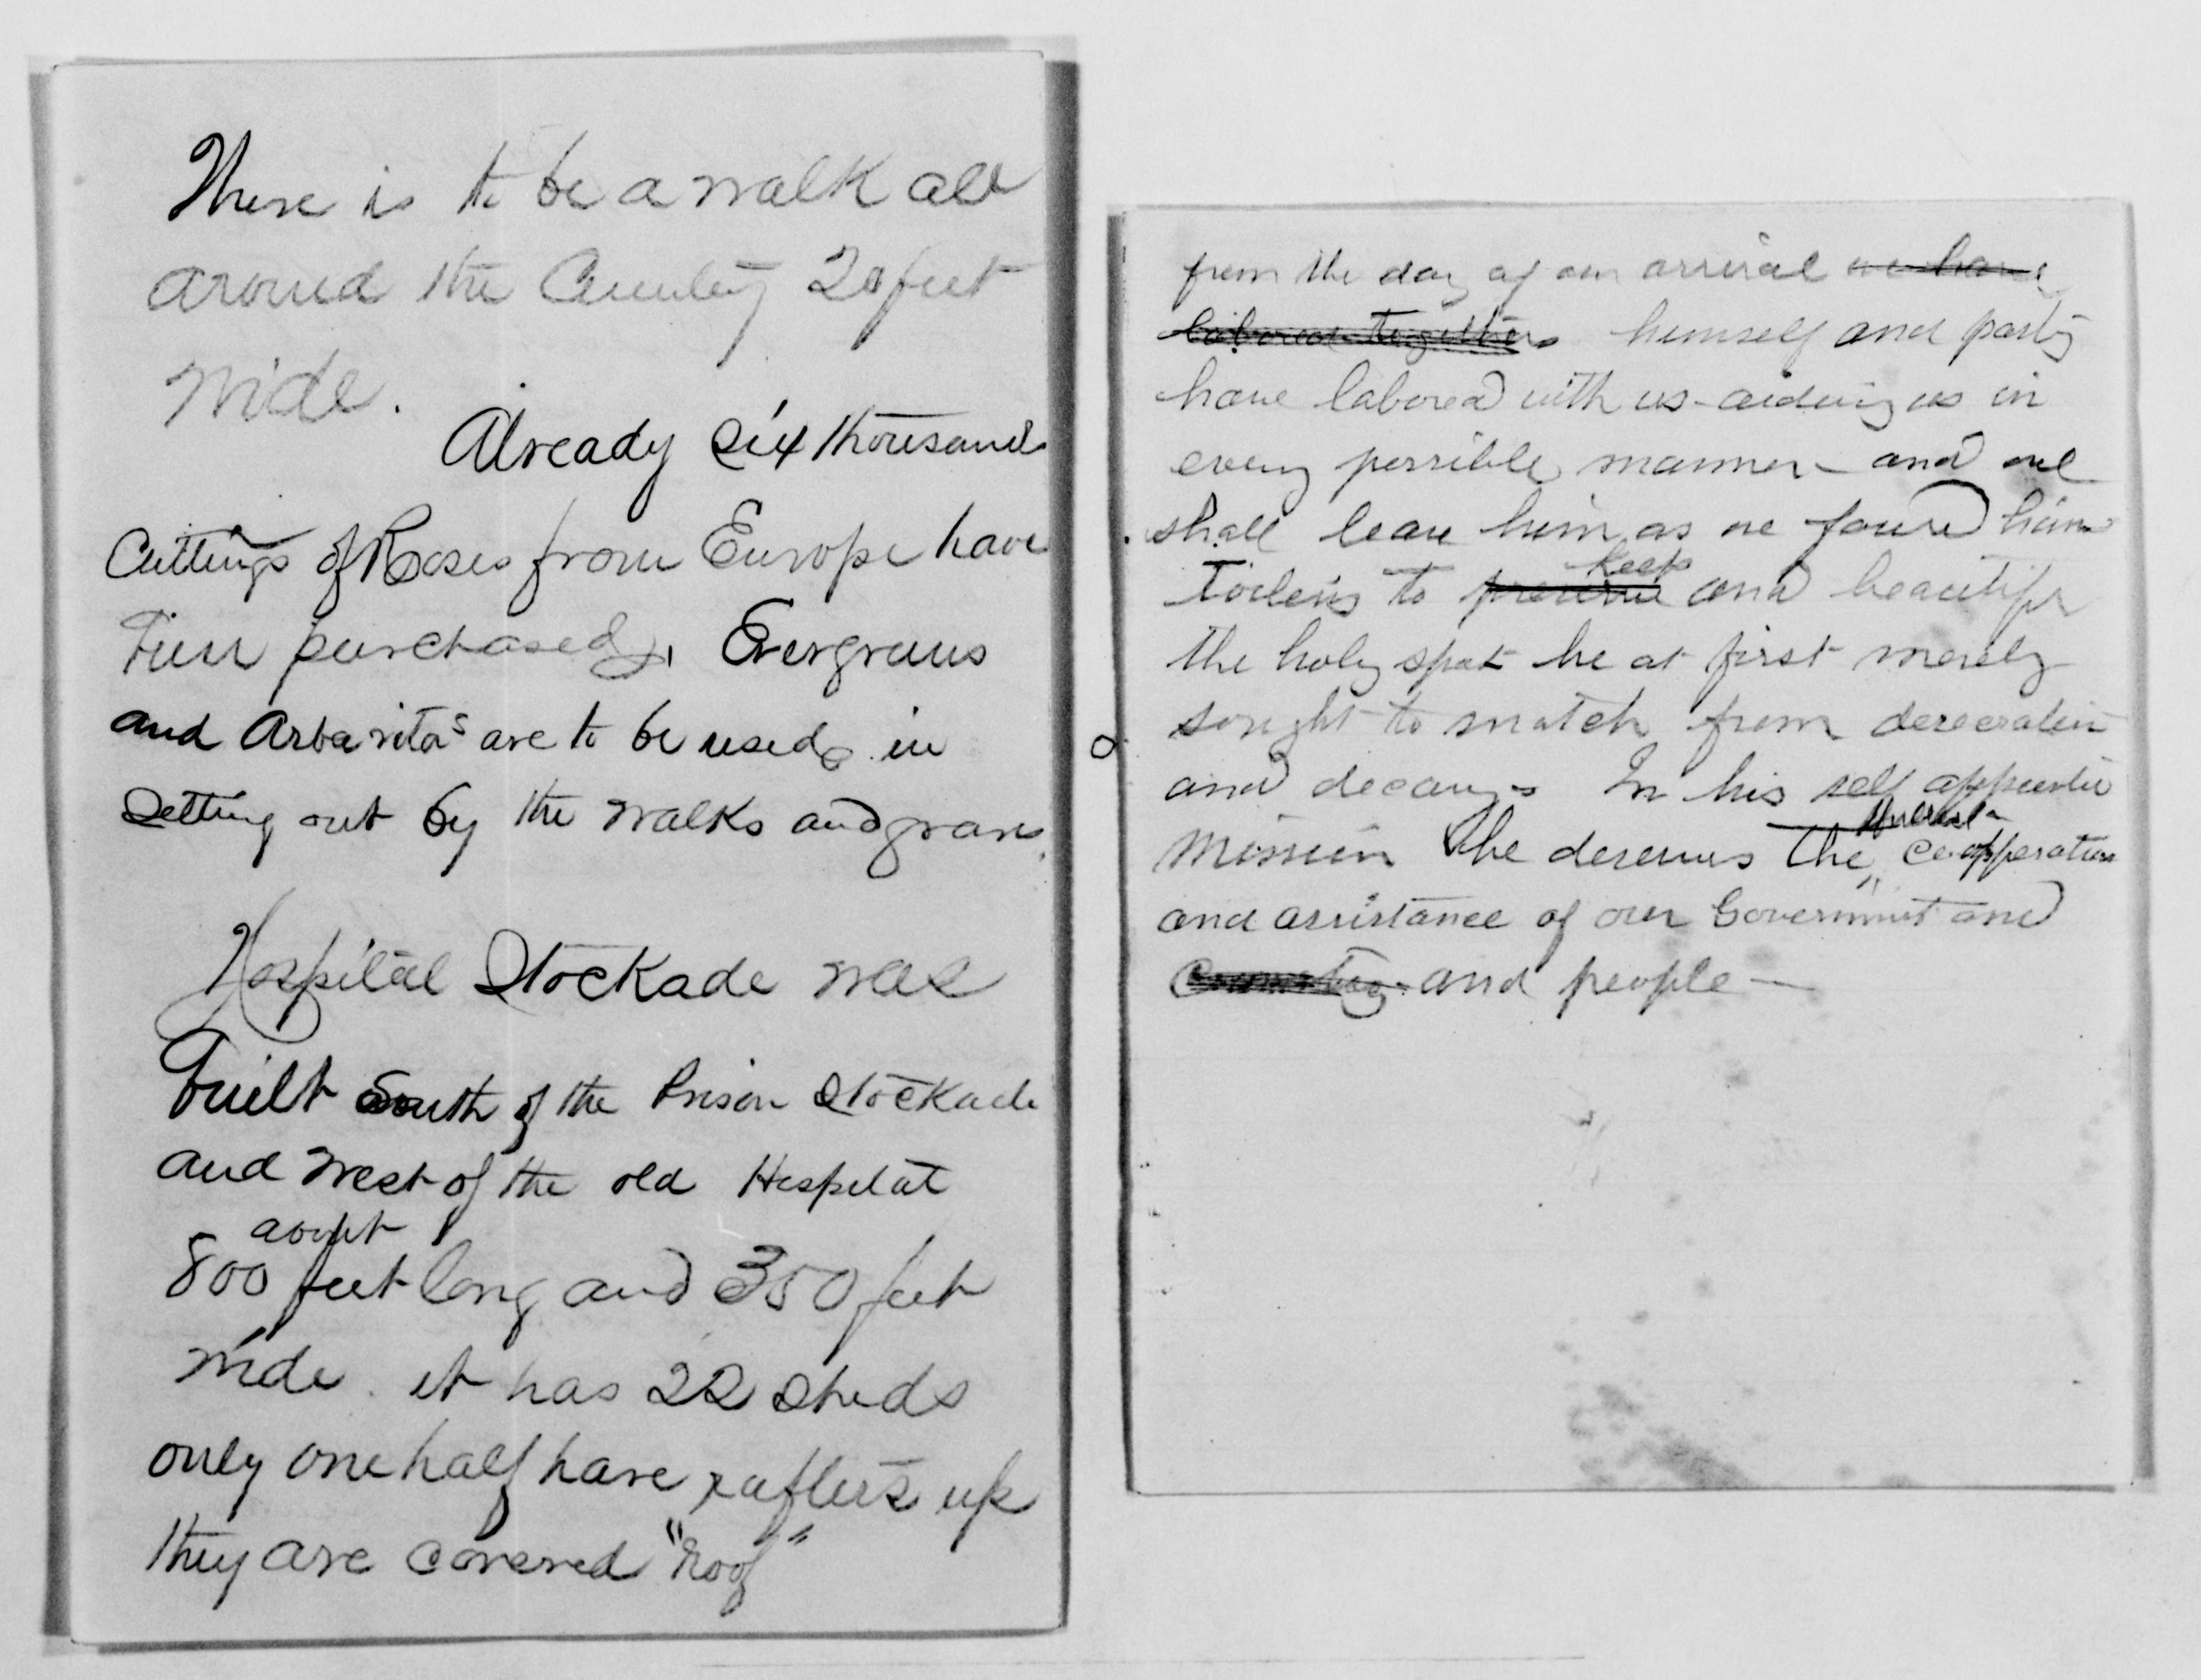 There is to be a walk all
around the Cemetery 20 feet
wide.
Already six thousand
Cuttings of Roses from Europe have
been purchased, Evergreens
and Arbavitas are to be used in
setting out by the walks and graves.
Hospital Stockade was
built South of the Prison Stockade
and West of the old Hospital
about
800 feet long and 350 feet
wide. it has 22 Sheds
only one half have rafters up
they are covered "roof"
from the day of our arrival we have
labored together himself and party
have labored with us - aiding us in
every possible manner - and we
shall leave him as we found him
keep
toiling to preserve and beautify
the holy spot he at first merely
sought to snatch from desecration
and decay - In his self appointed
mission he deserves the cooperation
and assistance of our Government and
Country and people -